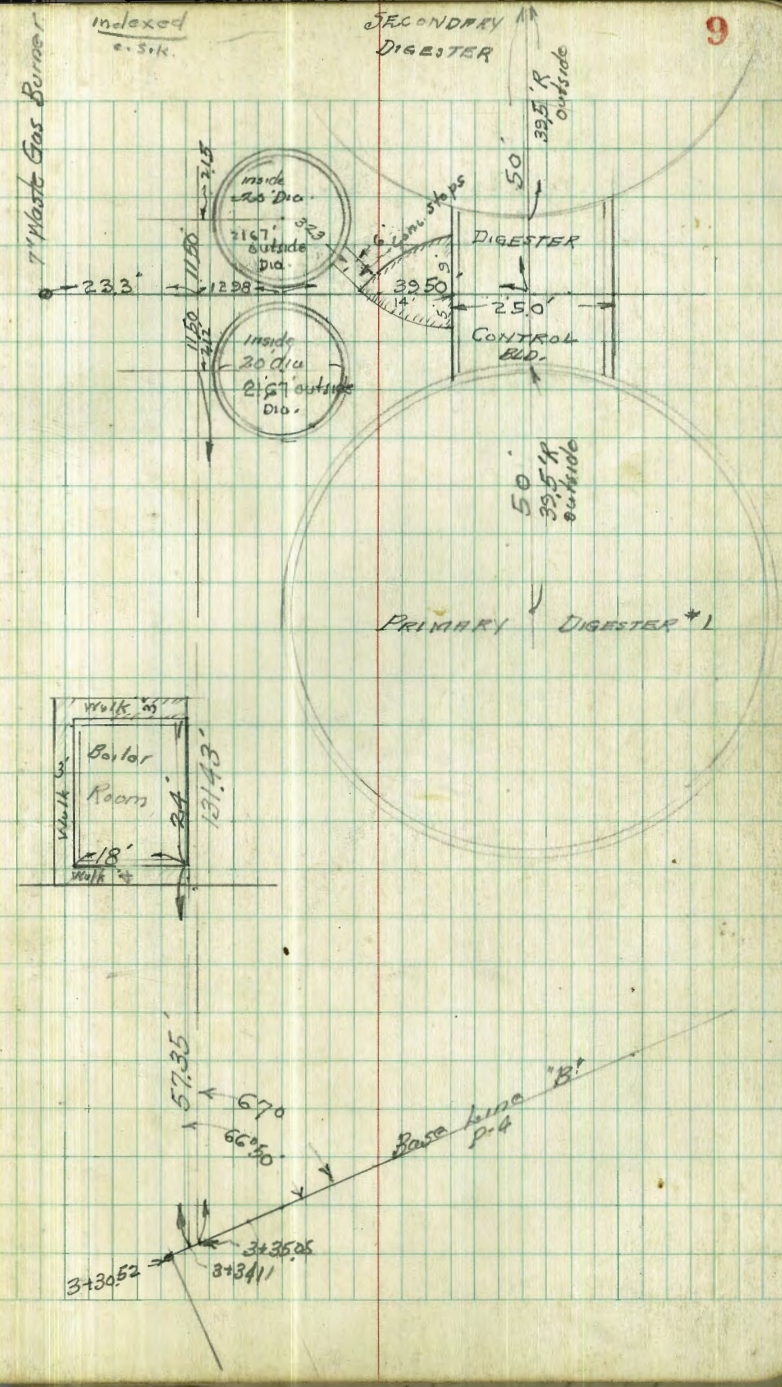 Indexed
SECONDARY
DIGESTER
9
7" Waste Gas Burner
39.5'R
outside
50'
21.5
11.50'
Inside
20' Dia.
21.67'
outside
Dia.
3.23
6" conc. stops
DIGESTER
9'
23.3'
12.98
39.50'
14'
5'
25.0'
CONTROL
BLD.
11.50
21.2
Inside
20' dia
21.67' outside
Dia.
50'
39.5'R
outside
PRIMARY DIGESTER #1
Walk 3'
Walk 3'
Boiler
Room
24'
131.43'
18'
Walk 4'
57.35'
67°
66°50'
Base Line "B"
P-4
3+35.05
3+34.11
3+30.52